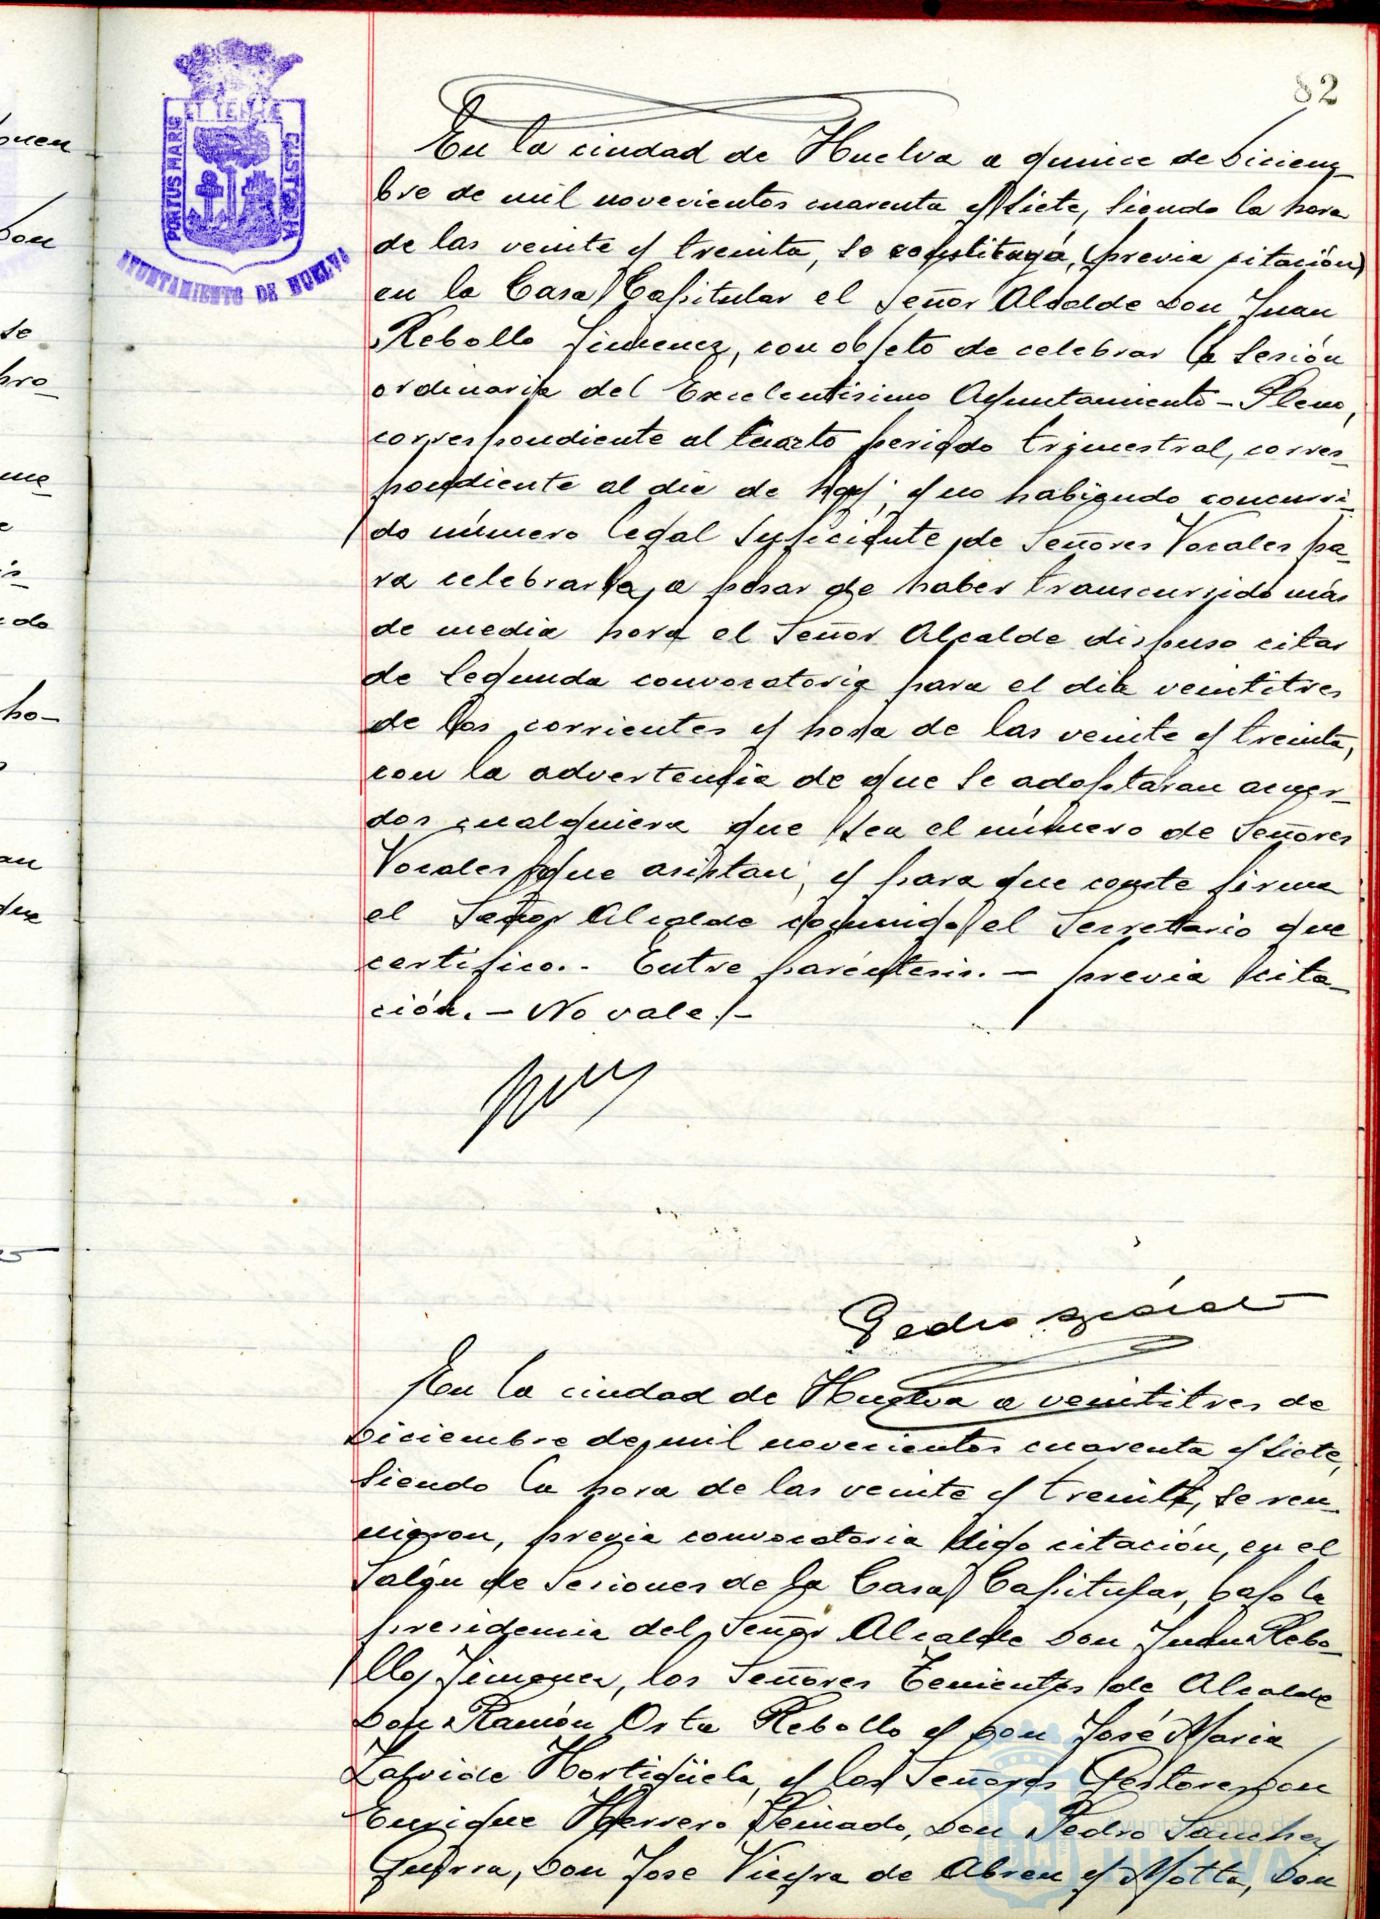 82
PORTUS MARIS
ET TERRE
CUSTODIA
AYUNTAMIENTO DE HUELVA
En la ciudad de Huelva a quince de Diciem-
bre de mil novecientos cuarenta y siete, siendo la hora
de las veinte y treinta, se constituyó, (previa citación)
en la Casa Capitular el Señor Alcalde Don Juan
Rebollo Jimenez, con objeto de celebrar la sesión
ordinaria del Excelentisimo Ayuntamiento-Pleno,
correspondiente al cuarto periodo trimestral, corres-
pondiente al dia de hoy; y no habiendo concurri-
do número legal suficiente de Señores Vocales pa-
ra celebrarla, a pesar de haber transcurrido más
de media hora el Señor Alcalde dispuso citar
de segunda convocatoria para el dia veintitres
de los corrientes y hora de las veinte y treinta,
con la advertencia de que se adoptaran acuer-
dos cualquiera que sea el número de Señores
Vocales que asistan; y para que conste firma
el Señor Alcalde conmigo el Secretario que
certifico.- Entre paréntesis.- previa cita-
ción.- No vale.-
Pedro
En la ciudad de Huelva a veintitres de
Diciembre de mil novecientos cuarenta y siete,
siendo la hora de las veinte y treinta, se reu-
nieron, previa convocatoria digo citación, en el
Salón de Sesiones de la Casa Capitular, bajo la
presidencia del Señor Alcalde Don Juan Rebo-
llo Jimenez, los Señores Tenientes de Alcalde
Don Ramón Orta Rebollo y Don José Maria
Zafvide Hortigüela, y los Señores Gestores Don
Enrique Herrero Peinado, Don Pedro Sanchez
Guerra, Don Jose Vieyra de Abreu y Motta, Don
Ayuntamiento de
HUELVA